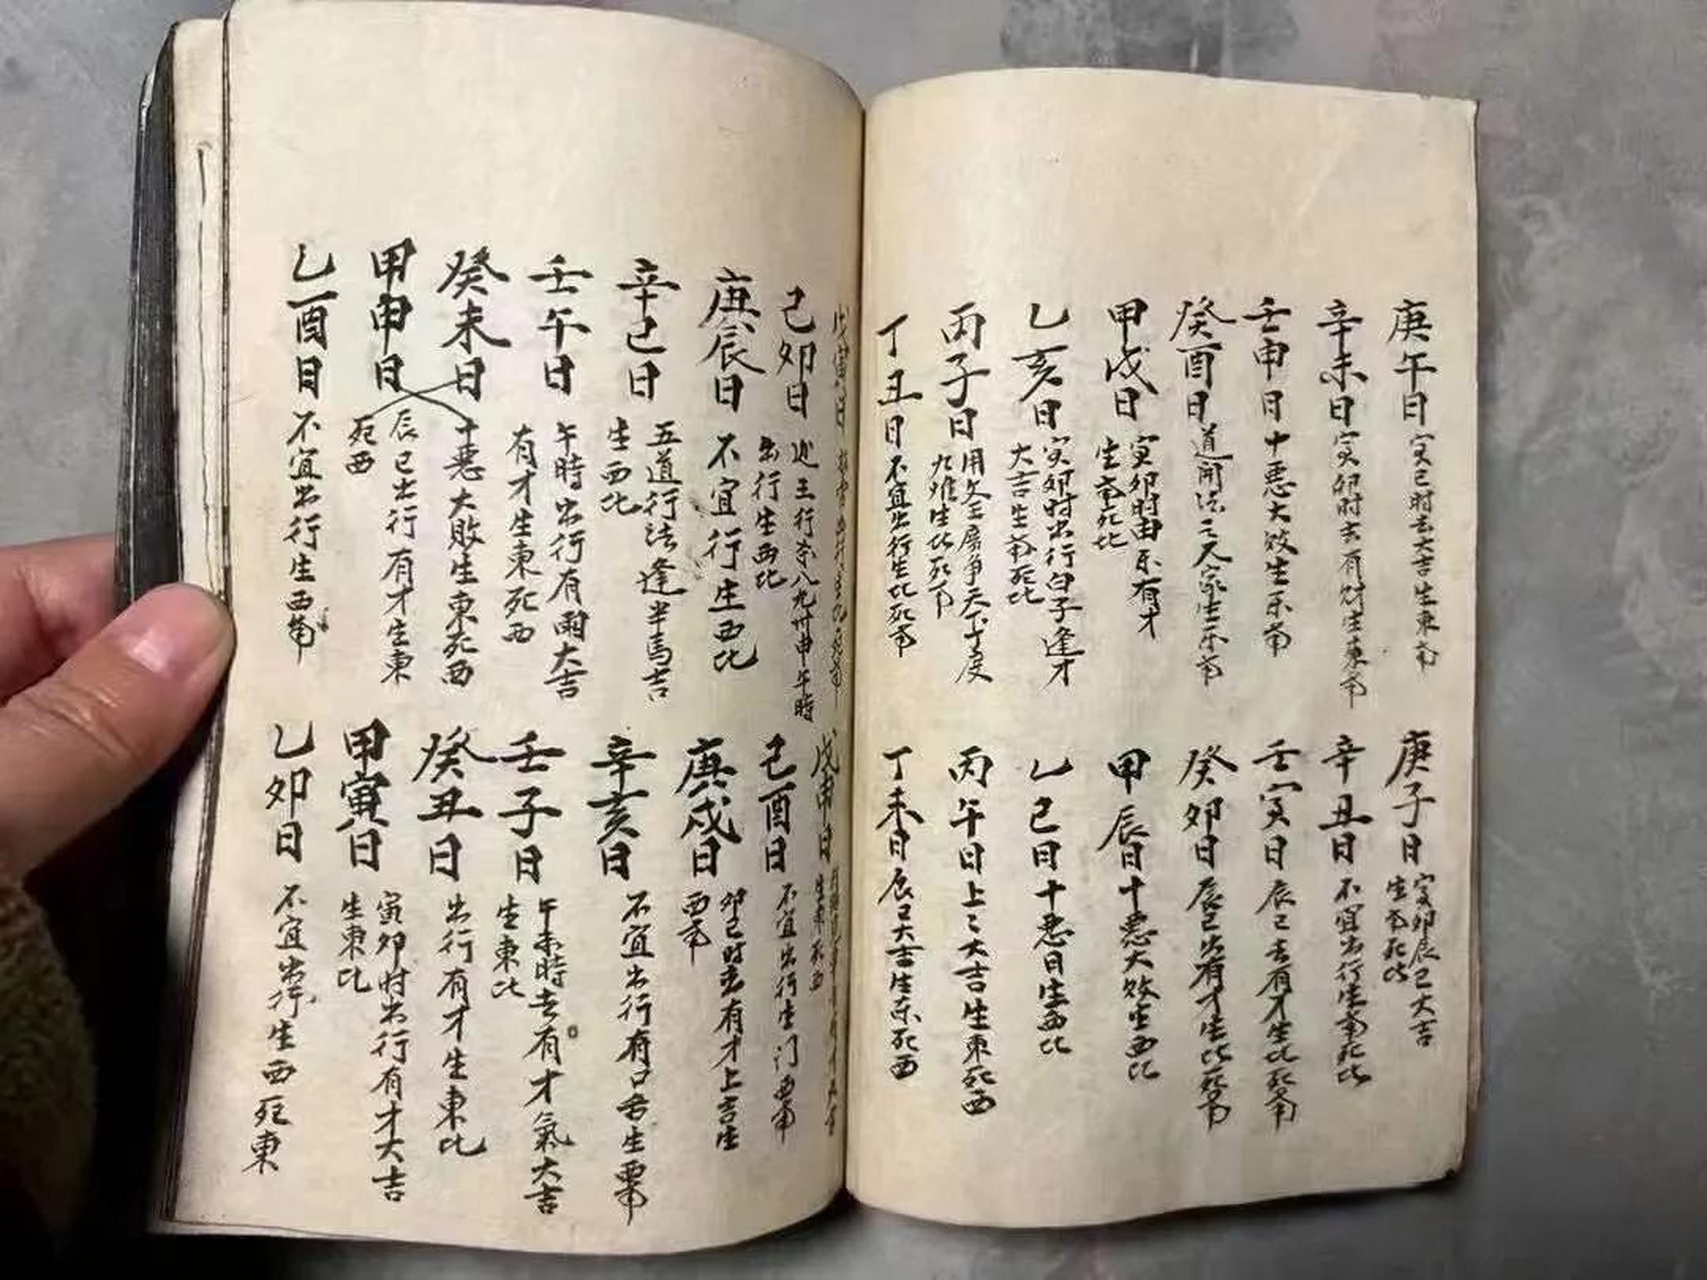 庚午日 寅巳时去大吉生東南
辛未日 寅卯时去有财生東南
壬申日 十悪大败生东南
癸酉日 道开法三天家生东南
甲戌日 寅卯时由东有才
生南死比
乙亥日 寅卯时出行白子逢才
大吉生南死比
丙子日 用文王
九难生比死南
丁丑日 不宜出行生比死南
庚子日 寅卯辰巳大吉
生南死比
辛丑日 不宜出行生南死比
壬寅日 辰巳去有才生比死南
癸卯日 辰巳出有才生比死南
甲辰日 十悪大败生西比
乙巳日 十悪日生西比
丙午日 上上大吉生東死西
丁未日 辰巳大吉生东死西
戊寅日
己卯日 八九卅申午時
出行生西比
庚辰日 不宜行生西比
辛巳日 五道行法逢半馬吉
生西比
壬午日 午時出行有雨大吉
有才生東死西
癸未日 十悪大敗生東死西
甲申日 辰巳出行有才生東
死西
乙酉日 不宜出行生西南
戊申日
生東死西
己酉日 不宜出行生门西南
庚戌日 卯巳时去有才上吉生
西南
辛亥日 不宜出行有口舌生西南
壬子日 午未時去有才氣大吉
生東比
癸丑日 出行有才生東比
甲寅日 寅卯时出行有才大吉
生東比
乙卯日 不宜出行生西死東